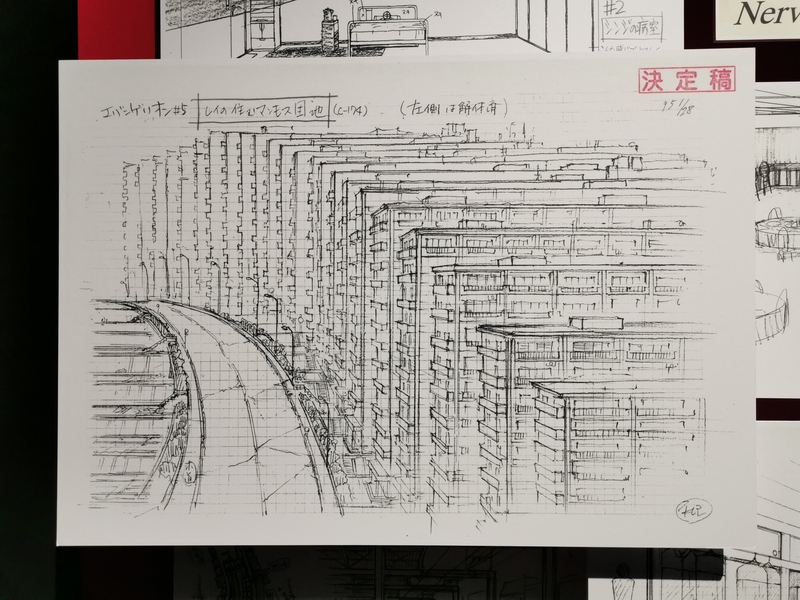 #2
シンジの病室
Nerv
決定稿
エバンゲリオン#5 レイの住むマンモス団地 (C-174) (左側は解体済)
95 1/28